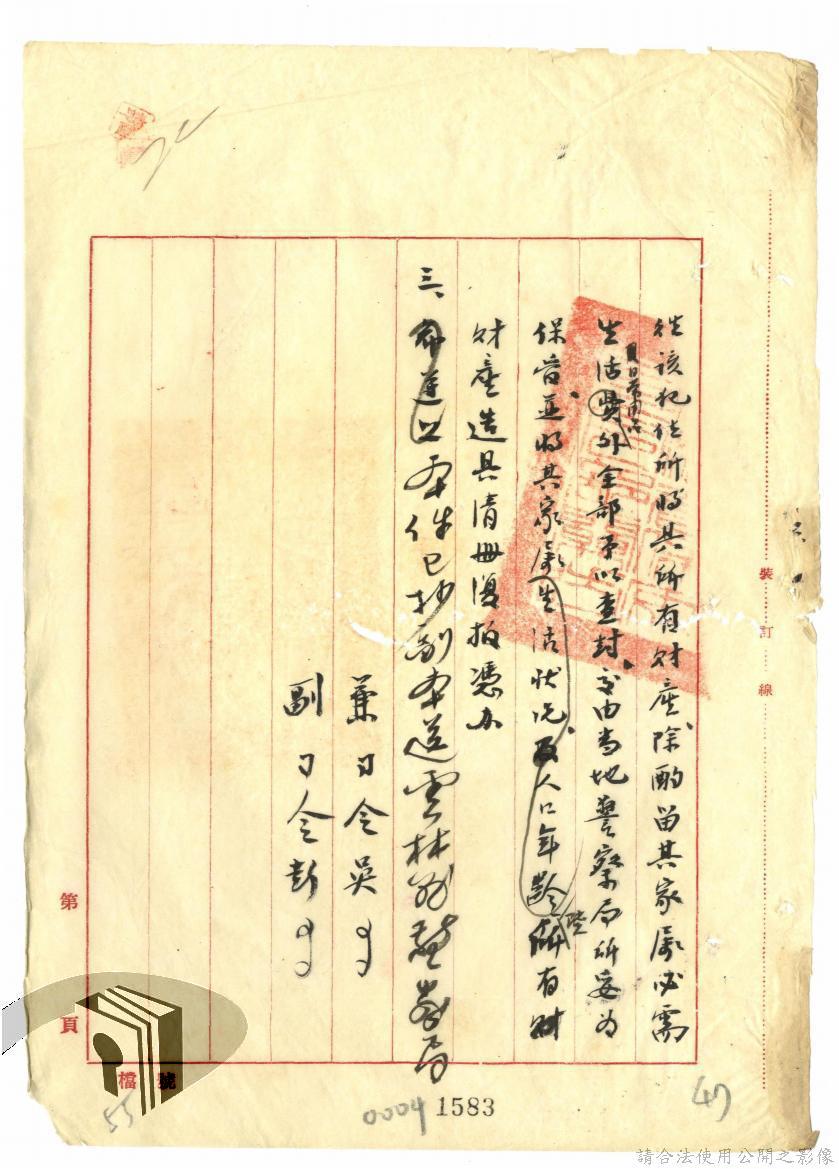 往該犯住所將其所有財產除酌留其家屬必需
生活費外全部予以查封交由當地警察局所妥為
及日常用品
保管並將其家屬生活狀況及人口年齡所有財
財產造具清冊復報憑辦
三、本件已抄副本送雲林縣警察局
兼司令吳
副司令彭
裝訂線
第頁
檔號
55
0004
1583
47
請合法使用公開之影像